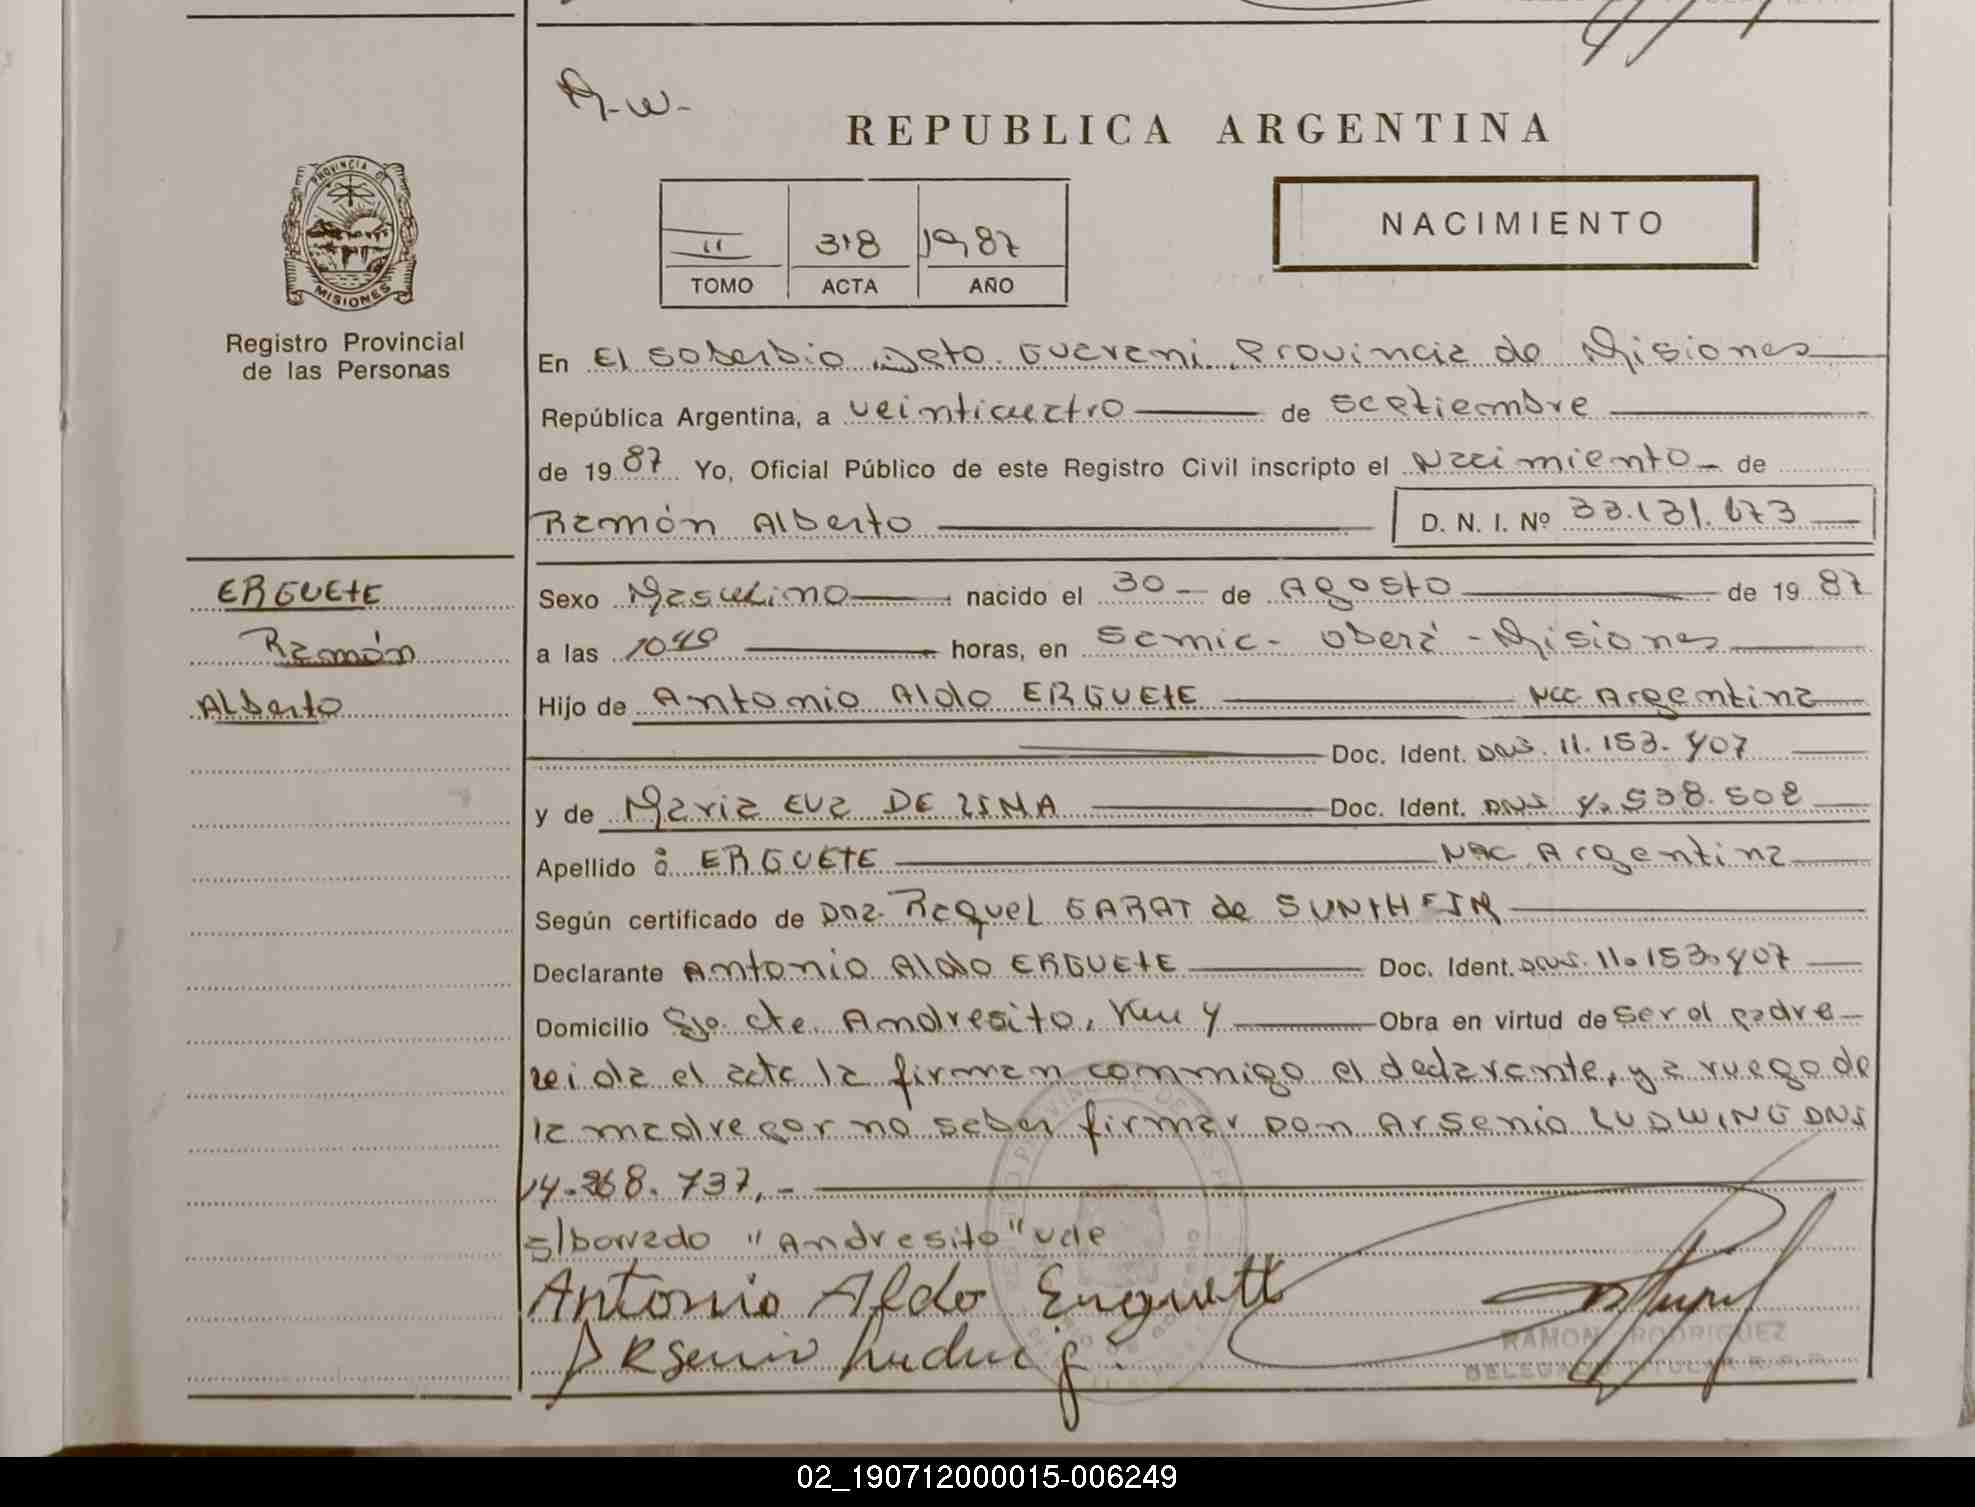 M.W.
REPUBLICA ARGENTINA
PROVINCIA DE
MISIONES
Registro Provincial
de las Personas
II 318 1987
TOMO ACTA AÑO
NACIMIENTO
En El Soberbio, Dpto. Guarani, Provincia de Misiones
República Argentina, a veinticuatro de septiembre
de 1987 Yo, Oficial Público de este Registro Civil inscripto el Nacimiento de
Ramón Alberto D. N. I. Nº 33.131.673
ERGUETE
Ramón
Alberto
Sexo Masculino nacido el 30 de Agosto de 1987
a las 10 40 horas, en Samic - Oberá - Misiones
Hijo de Antonio Aldo ERGUETE Nac Argentina
Doc. Ident. DNI. 11.153.407
y de Maria Eva DE LIMA Doc. Ident. DNI 4.538.508
Apellido ô ERGUETE NAC Argentina
Según certificado de Dña. Raquel GARAT de SUNTHEIM
Declarante Antonio Aldo ERGUETE Doc. Ident. DNI. 11.153.407
Domicilio cte Andresito, Km 4 Obra en virtud de ser el padre
leida el acta la firman conmigo el declarante, y a ruego de
la madre por no saber firmar Don Arsenio LUDWING DNI
14.268.737,-
s/borrado "Andresito" vale
Antonio Aldo Erguett
Arsenio Ludwig
RAMON RODRIGUEZ
DELEGADO TITULAR R.P.P.
02_190712000015-006249